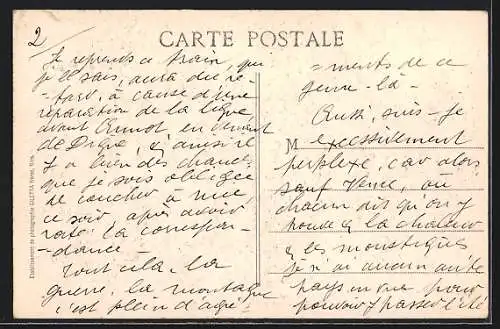 2
CARTE POSTALE
Je reprends ce train, qui
je le sais, aura du re-
-tard, à cause d'une
réparation de la ligne
avant Annot en venant
de Digne, et ainsi il
y a bien des chances
que je sois obligée
de coucher à Nice
ce soir, après avoir
raté la correspon-
-dance -
Tout cela, la
guerre, la montagne
c'est plein d'agré-
=ments de ce
genre-là -
Aussi, suis-je
M
excessivement
perplexe, car alors
sauf Vence, où
chacun dit qu'on y
trouve la chaleur
& les moustiques
je n'ai aucun autre
pays en vue pour
pouvoir y passer l'été
Etablissement de photographie GILETTA frères, Nice.